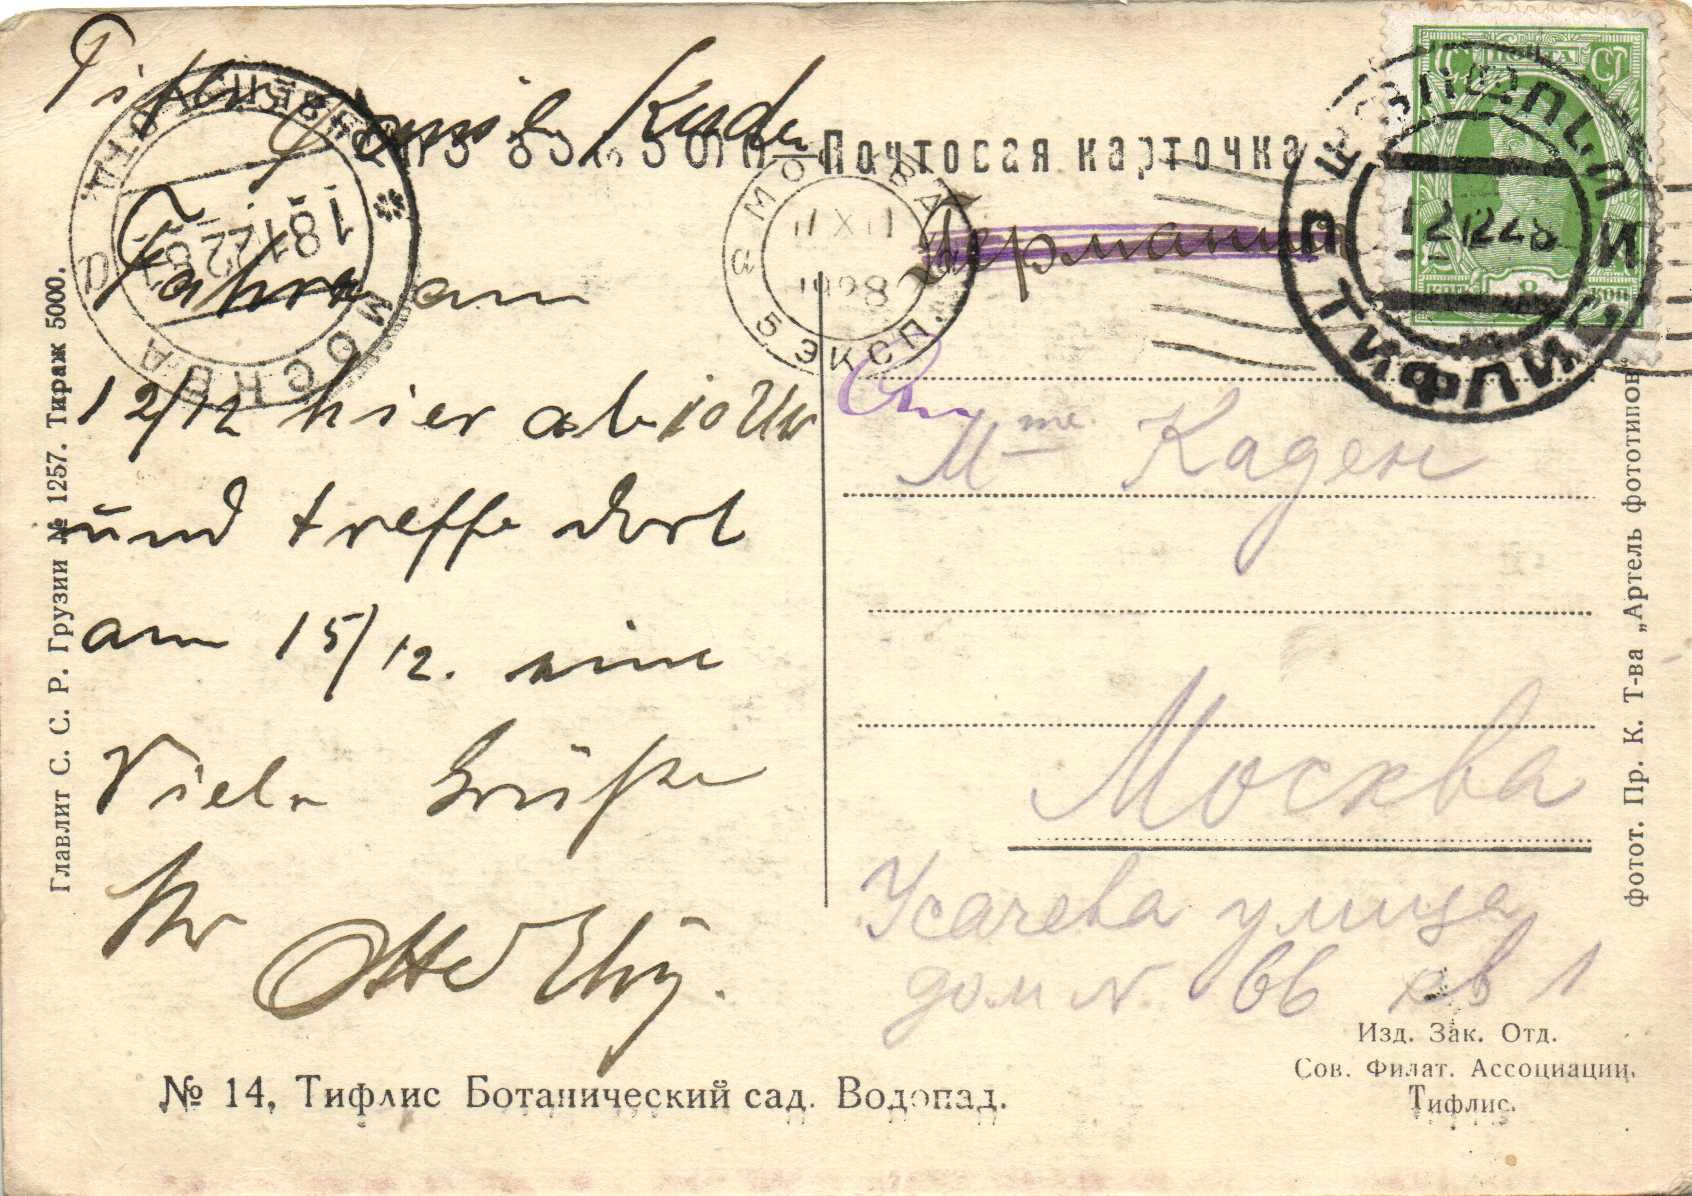 Почтовая карточка
Familie Kaden
Fahre am
12/12 hier ab 10 Uhr
und treffe dort
am 15/12. eine
Viele Grüße
Ihr
Otto
Германия
Mme. Каден
Москва
Усачева улица
дом N. 66 кв 1
ТИФЛИС
12 12 28
МОСКВА
1928
5 ЭКСП.
МОСКВА
18 12 28
Главлит С. С. Р. Грузии № 1257. Тираж 5000.
фотот. Пр. К. Т-ва „Артель фототипов
№ 14, Тифлис Ботанический сад. Водопад.
Изд. Зак. Отд.
Сов. Филат. Ассоциации,
Тифлис.